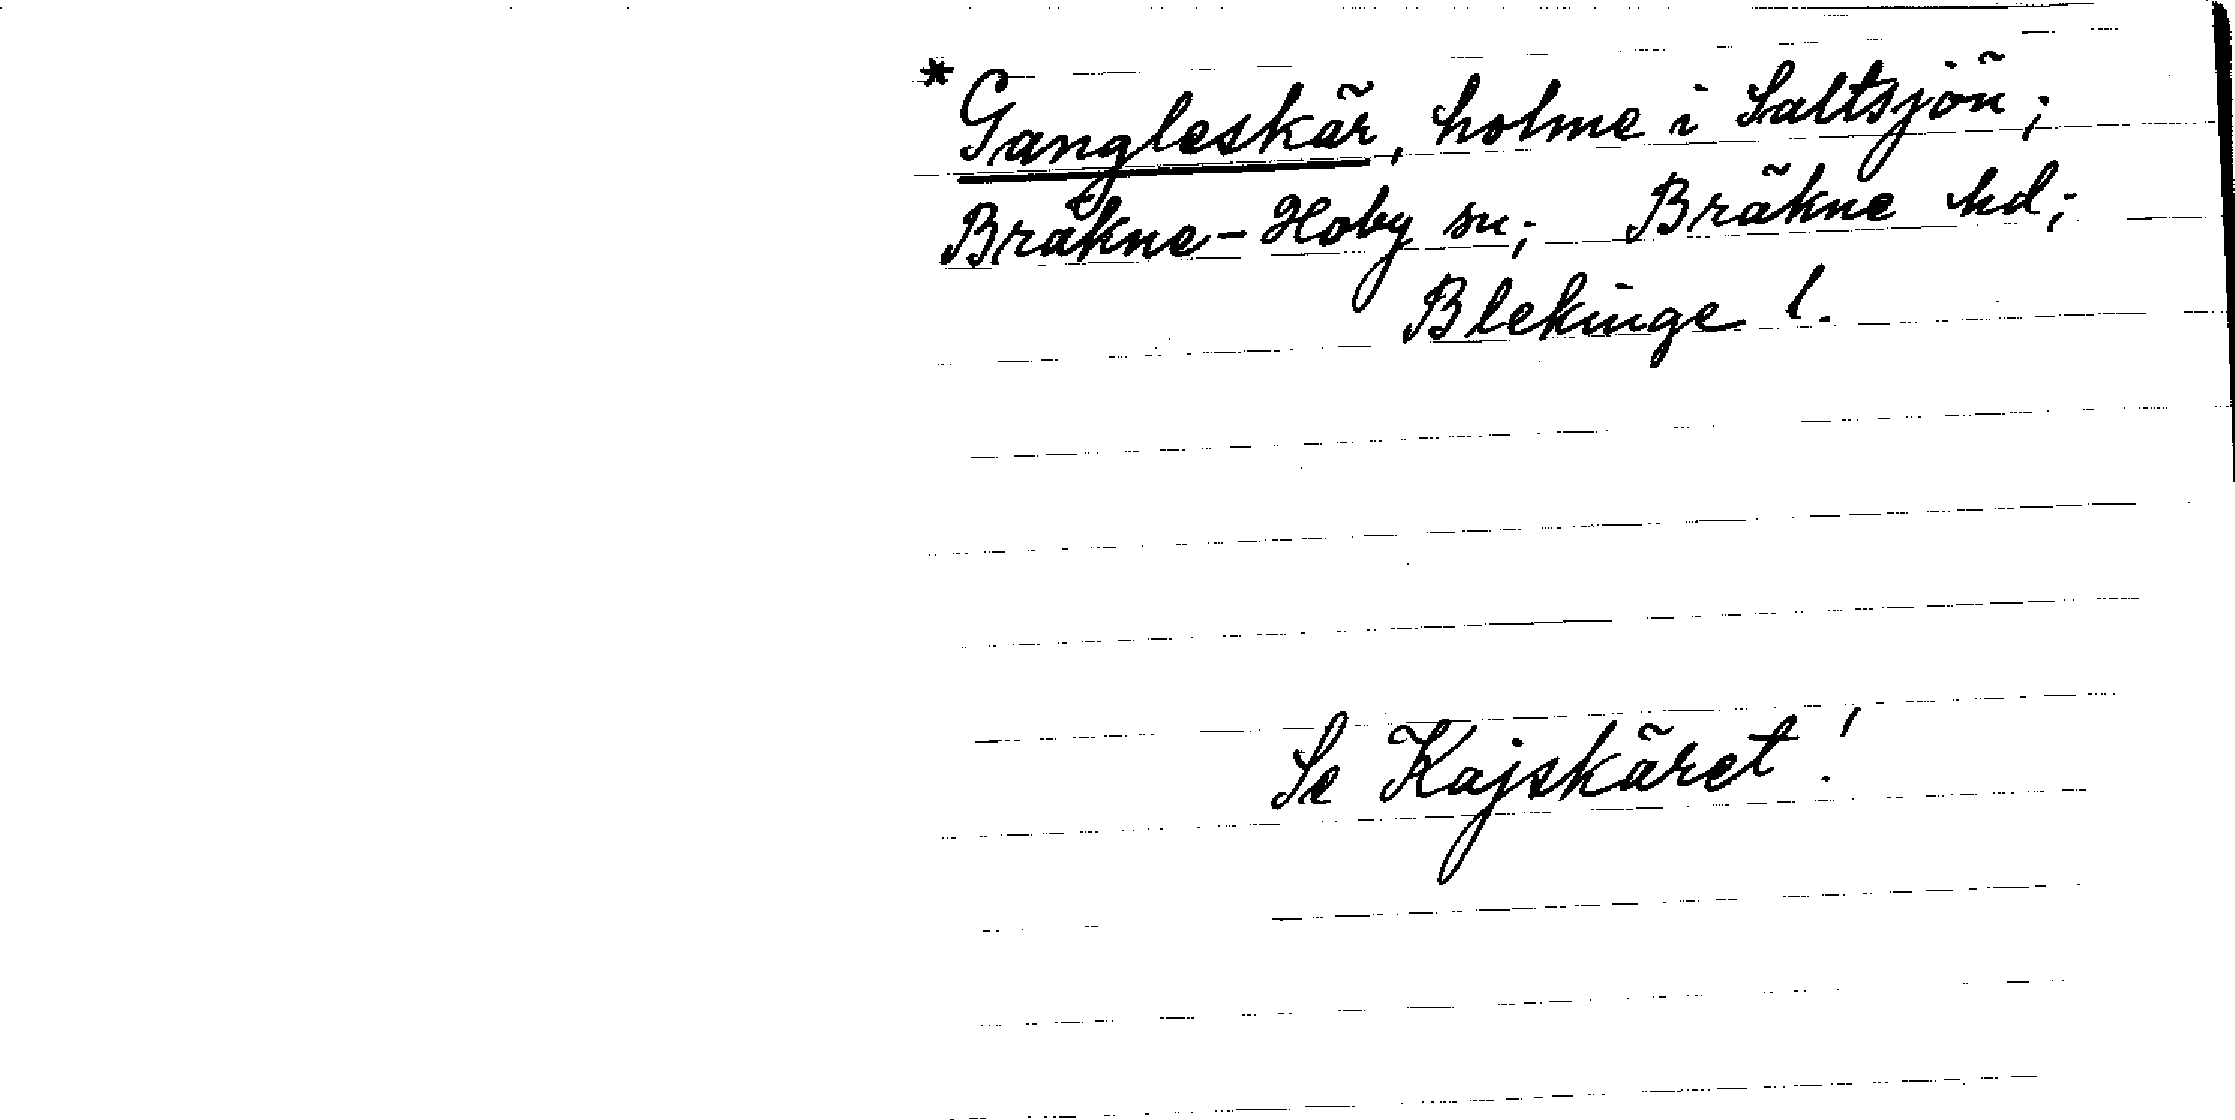 *Gangleskär, holme i Saltsjön;
Bräkne-Hoby sn; Bräkne hd;
Blekinge l.
Se Kajskäret!